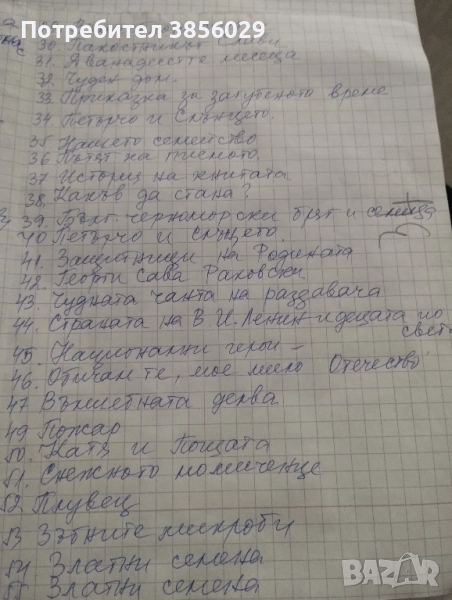 Потребител 3856029
30. Пакостникът Слави
31. Дванадесетте месеца
32. Чуден дом.
33. Приказка за загубеното време
34. Петърчо и Слънцето.
35 Нашето семейство
36 Пътят на писмото.
37 История на книгата
38. Какъв да стана?
39. Бълг. черноморски бряг и
40 Петърчо и слънцето.
41. Защитници на Родината
42. Георги Сава Раковски
43. Чудната чанта на раздавача
44. Страната на В. И. Ленин и децата по
света
45. Национални герои –
46. Обичам те, мое мило Отечество
47 Вълшебната делва
49 Пожар
50. Катя и Пощата
51. Снежното момиченце
52 Плувец
53 Зъбните микроби
54 Златни семена
55 Златни семена
BAZAR